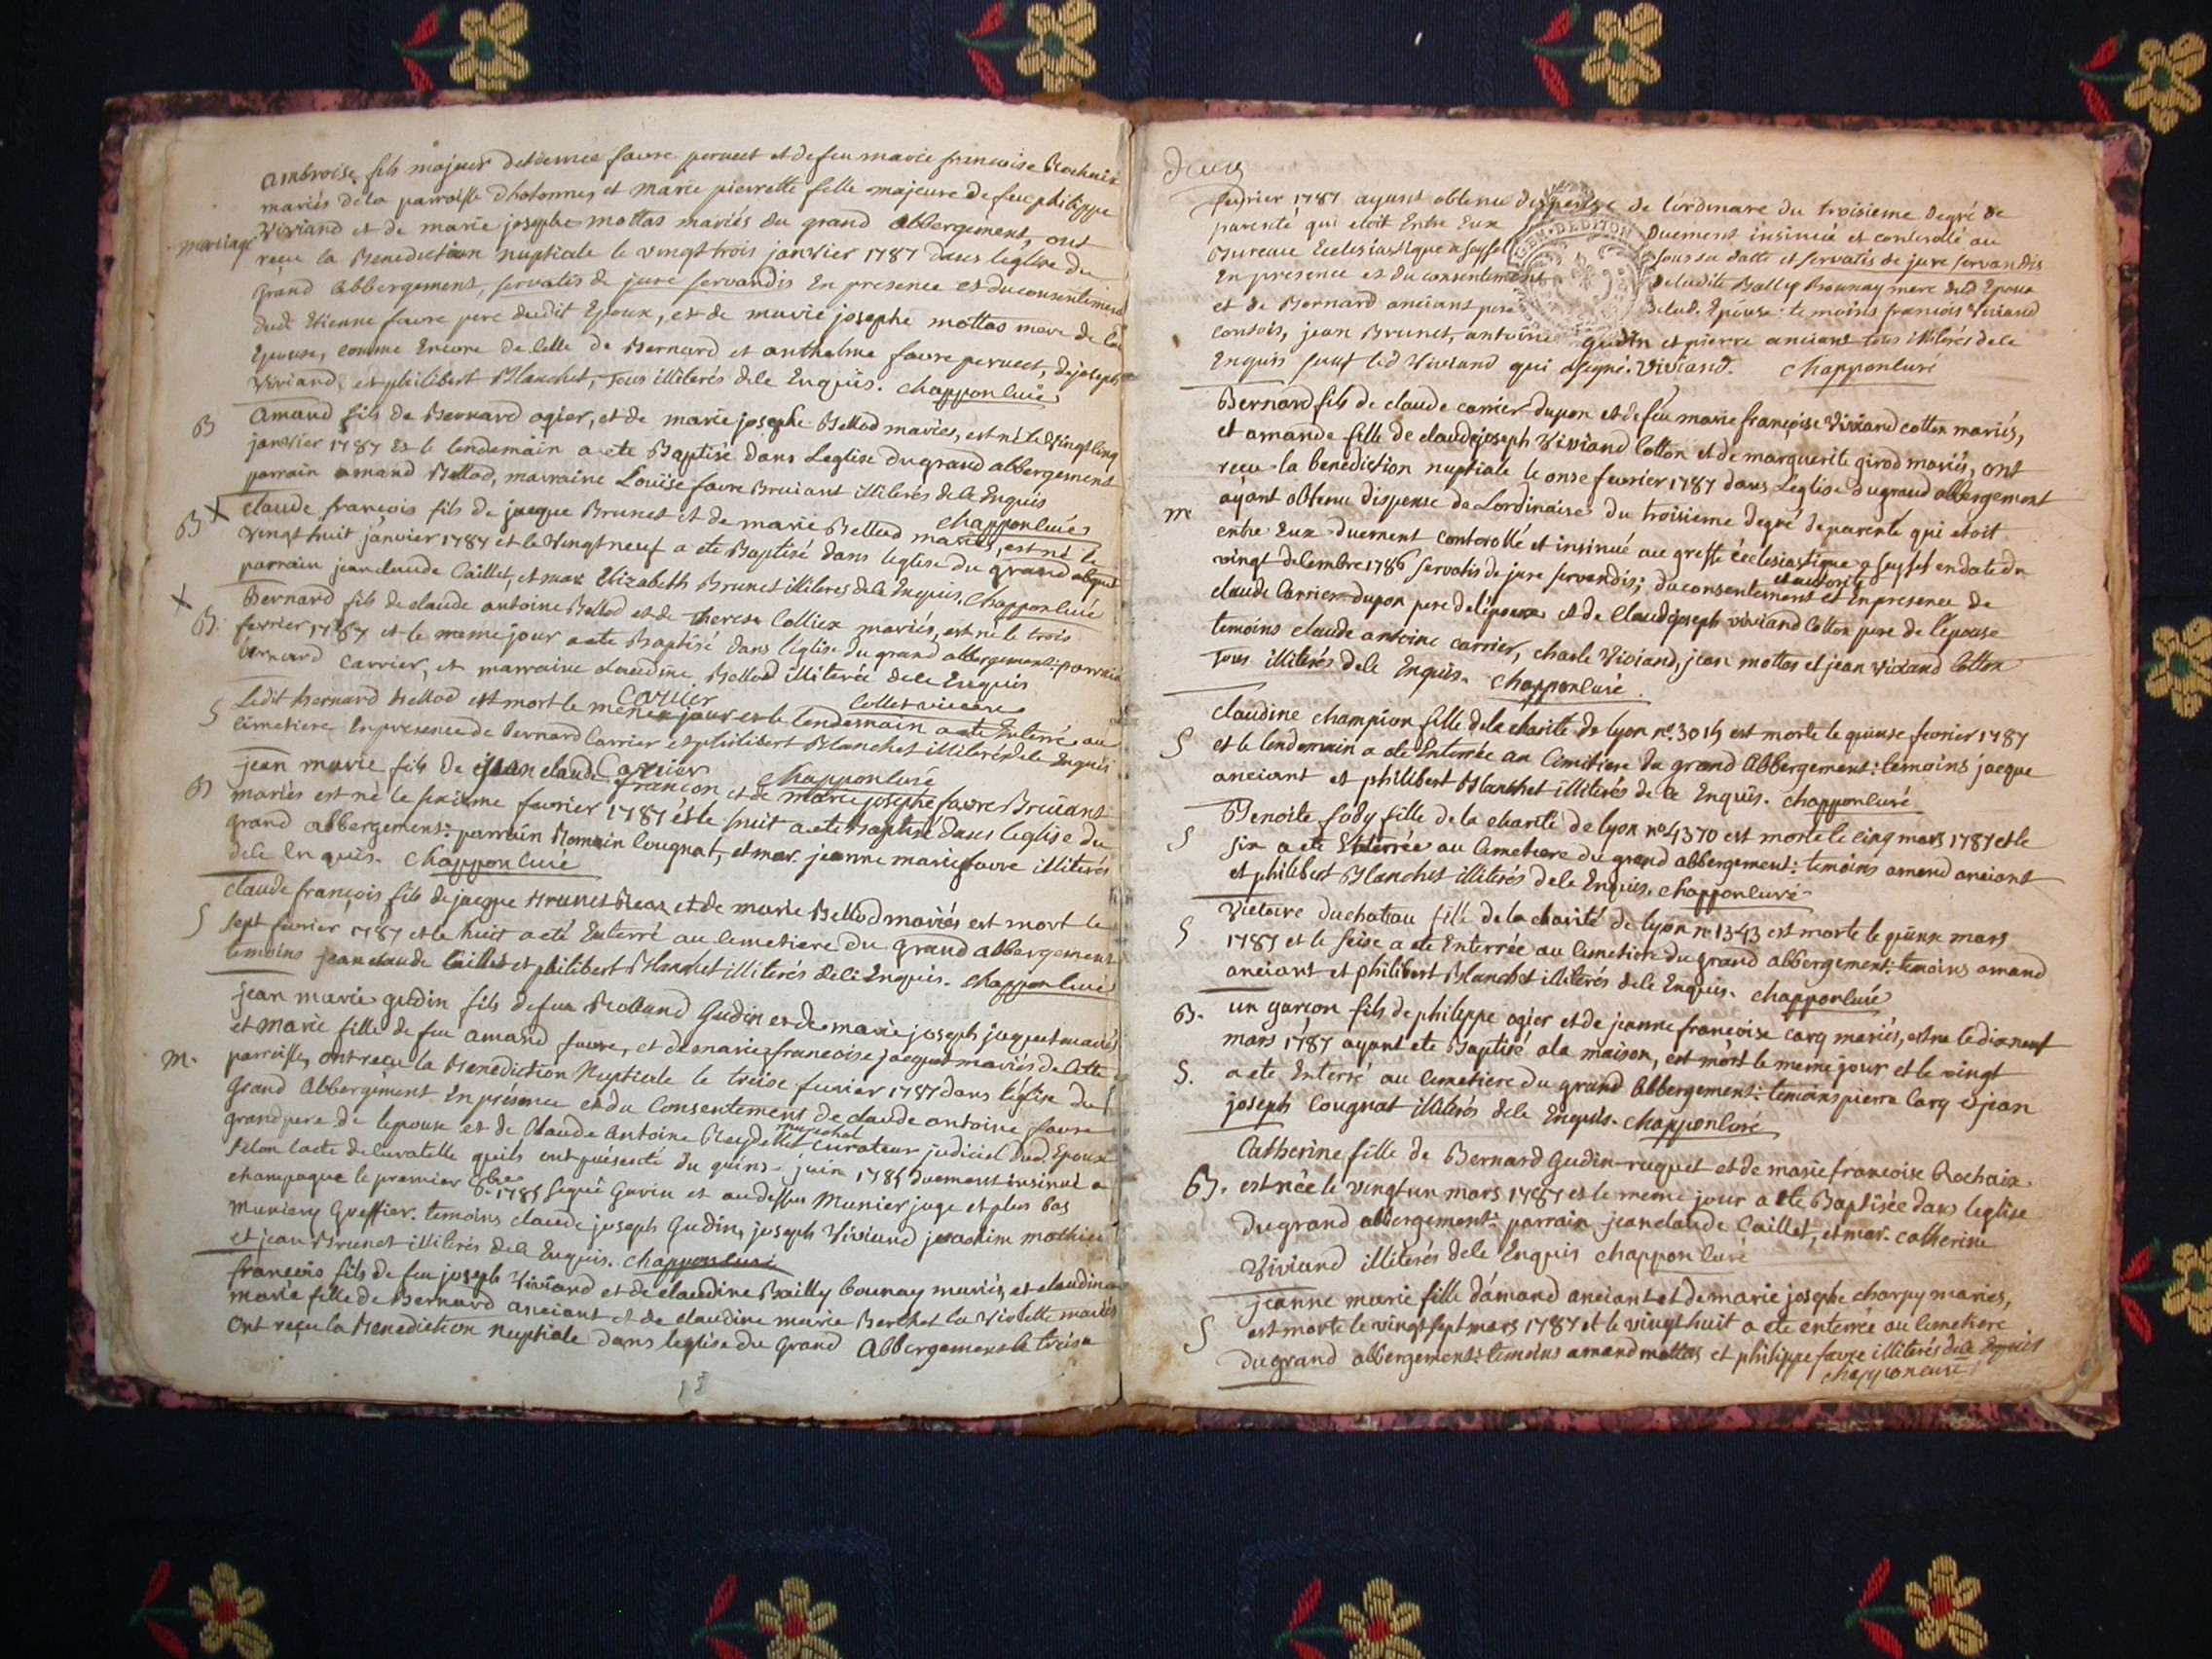 ambroise fils majeur detienne favre peruect et de feu marie francoise Rochaix
mariés de la parroisse dhotonnes, et marie pierrette fille majeure de feu philippe
mariage Viviand et de marie josephe mottas mariés du grand abbergement, ont
reçu la Benediction nuptiale le vingt trois janvier 1787 dans leglise du
grand abbergement, servatis de jure servandis En presence et du consentement
dudt Etienne favre pere dudit Epoux, et de marie josephe mottas mere de
Epouse, comme Encore de Celle de Bernard et anthelme favre peruect, de joseph
Viviand, et philibert Blanchet, tous illiterés dele Enquis. chappon curé
B amand fils de Bernard ogier, et de marie josephe Bellod mariés, est né le vingt cinq
janvier 1787 et le lendemain a ete Baptisé dans Leglise du grand abbergement
parrain amand Bellod, marraine Louise favre Bruiant illiterés dele Enquis
chappon curé
B X claude françois fils de jacque Brunet et de marie Bellod mariés, est né le
vingt huit janvier 1787 et le vingt neuf a ete Baptisé dans leglise du grand
parrain jean claude Caillet, et mar. Elizabeth Brunet illiteres dele Enquis. chappon curé
X Bernard fils de claude antoine Bellod et de therese Colliex mariés, est né le trois
B. fevrier 1787 et le meme jour a ete Baptisé dans leglise du grand abbergement: parrain
bernard Carrier, et marraine claudine Bellod illiterée dele Enquis
Carrier Collet vicaire
S Ledit bernard bellod est mort le meme jour et le lendemain a ete Enterré au
cimetiere En presence de bernard Carrier et philibert Blanchet illiterés dele Enquis
Carrier chappon curé
B jean marie fils de jean claude françon et de marie josephe favre Bruiant
mariés est né le sixieme fevrier 1787 et le huit a ete baptisé dans leglise du
grand abbergement: parrain Romain Cougnat, et mar. jeanne marie favre illiterés
dele Enquis. chappon curé
claude françois fils de jacque Brunet et de marie Bellod mariés est mort le
S sept fevrier 1787 et le huit a eté Enterré au Cemetiere du grand abbergement
temoins jean claude Caillet et philibert Blanchet illiterés dele Enquis. chappon curé
jean marie gudin fils de feu Rolland Gudin et de marie joseph jacquet mariés
et marie fille de feu amand favre, et de marie francoise jacquet mariés de Cette
m. parroisse, ont reçu la Benediction Nuptiale le treise fevrier 1787 dans léglise du
Grand Abbergement En présence et du Consentement de claude antoine favre
grand pere de lepouse et de Claude Antoine Reydellet marechal curateur judiciel dud. Epoux
selon lacte de Curatelle quils ont présenté du quinse juin 1785 duement insinué a
champagne le premier 8bre 1785 signé Gavin et au dessus Munier juge et plus bas
Muniery Greffier. temoins claude joseph Gudin, joseph Viviand joachim mathieu
et jean Brunet illiterés dele Enquis. chappon curé
francois fils de feu joseph Viviand et de claudine Bailly Counay mariés, et claudine
marie fille de Bernard anciant et de claudine marie Berthet la Violette mariés
ont reçu la Benediction Nuptiale dans leglise du Grand Abbergement le treise
fevrier 1787 ayant obtenu dispense de lordinaire du troisieme degré de
parenté qui etoit Entre Eux duement insinué et controllé au
Bureau Ecclesiastique de seyssel sous sa datte et servatis de jure servandis
En presence et du consentement deladite Bailly Counay mere dud Epoux
et de Bernard anciant pere delad. Epouse: temoins françois Viviand
jean Brunet, antoine gudin et pierre anciant tous illiterés dele
Enquis sauf led Viviand qui asigné. Viviand. chappon curé
Bernard fils de claude carrier dupon et de feu marie françoise Viviand cotton mariés,
et amande fille de claude joseph Viviand Cotton et de marguerite girod mariés, ont
reçu la benediction nuptiale le onse fevrier 1787 dans Leglise du grand abbergement
m ayant obtenu dispense de Lordinaire du troisieme degré de parenté qui etoit
entre Eux duement controllé et insinué au greffe écclesiastique a seyssel en date du
vingt decembre 1786 servatis de jure servandis; du consentement et autorité et En presence de
claude Carrier dupon pere de lépoux et de Claude joseph viviand Cotton pere de lépouse
temoins claude antoine carrier, charle Viviand, jean mottas et jean viviand Cotton
tous illiterés dele Enquis. chappon curé.
claudine champion fille dela charité de lyon no. 3015 est morte le quinse fevrier 1787
S et le lendemain a ete Enterrée au Cimetiere du grand abbergement: temoins jacque
anciant et philibert Blanchet illiterés de le Enquis. chappon curé
Benoite fody fille de la charité de lyon no 4370 est morte le cinq mars 1787 et le
S six a ete Enterrée au Cemetiere du grand abbergement: temoins amand anciant
et philibert Blanchet illiterés dele Enquis. chappon curé
Victoire duchateau fille de la charité de lyon no 1343 est morte le quinse mars
S 1787 et le seise a ete Enterrée au Cemetiere du grand abbergement: temoins amand
anciant et philibert Blanchet illiterés dele Enquis. chappon curé
B. un garçon fils de philippe ogier et de jeanne francoise carq mariés, est ne le dixneuf
mars 1787 ayant ete Baptisé a la maison, est mort le meme jour et le vingt
S. a ete Enterré au Cemetiere du grand Abbergement: temoins pierre Carq & jean
joseph Cougnat illiterés dele Enquis. chappon curé
Catherine fille de Bernard Gudin-ruquet et de marie francoise Rochaix
B. est née le vingt un mars 1787 et le meme jour a ete Baptisée dans leglise
du grand abbergement: parrain jean claude Caillet, et mar. catherine
Viviand illiterés dele Enquis chappon curé
jeanne marie fille d'amand anciant et de marie josephe charpy mariés,
S est morte le vingt sept mars 1787 et le vingt huit a ete enterrée au Cemetiere
du grand abbergement: temoins amand mottas et philippe favre illiterés dele Enquis
chappon curé